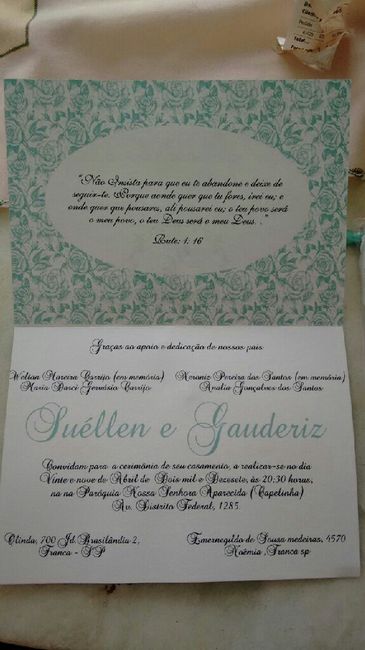 "Não Insista para que eu te abandone e deixe de
seguir-te. Porque aonde quer que tu fores, irei eu; e
onde quer que pousares, ali pousarei eu; o teu povo será
o meu povo, o teu Deus será o meu Deus. ."
Rute: 1: 16
Graças ao apoio e dedicação de nossos pais
Welson Moreira Carrijo (em memória)
Maria Darci Gervásio Carrijo
Pereira dos Santos (em memória)
Analia Gonçalves dos Santos
Suéllen e Gauderiz
Convidam para a cerimônia de seu casamento, a realizar-se no dia
Vinte e nove de Abril de Dois mil e Dezesete, às 20:30 horas,
na na Paróquia Nossa Senhora Aparecida (Capelinha)
Av. Distrito Federal, 1285.
Olinda, 700 Jd. Brasilândia 2,
Franca - SP
Emernegildo de Sousa medeiras, 4570
Noêmia, Franca sp